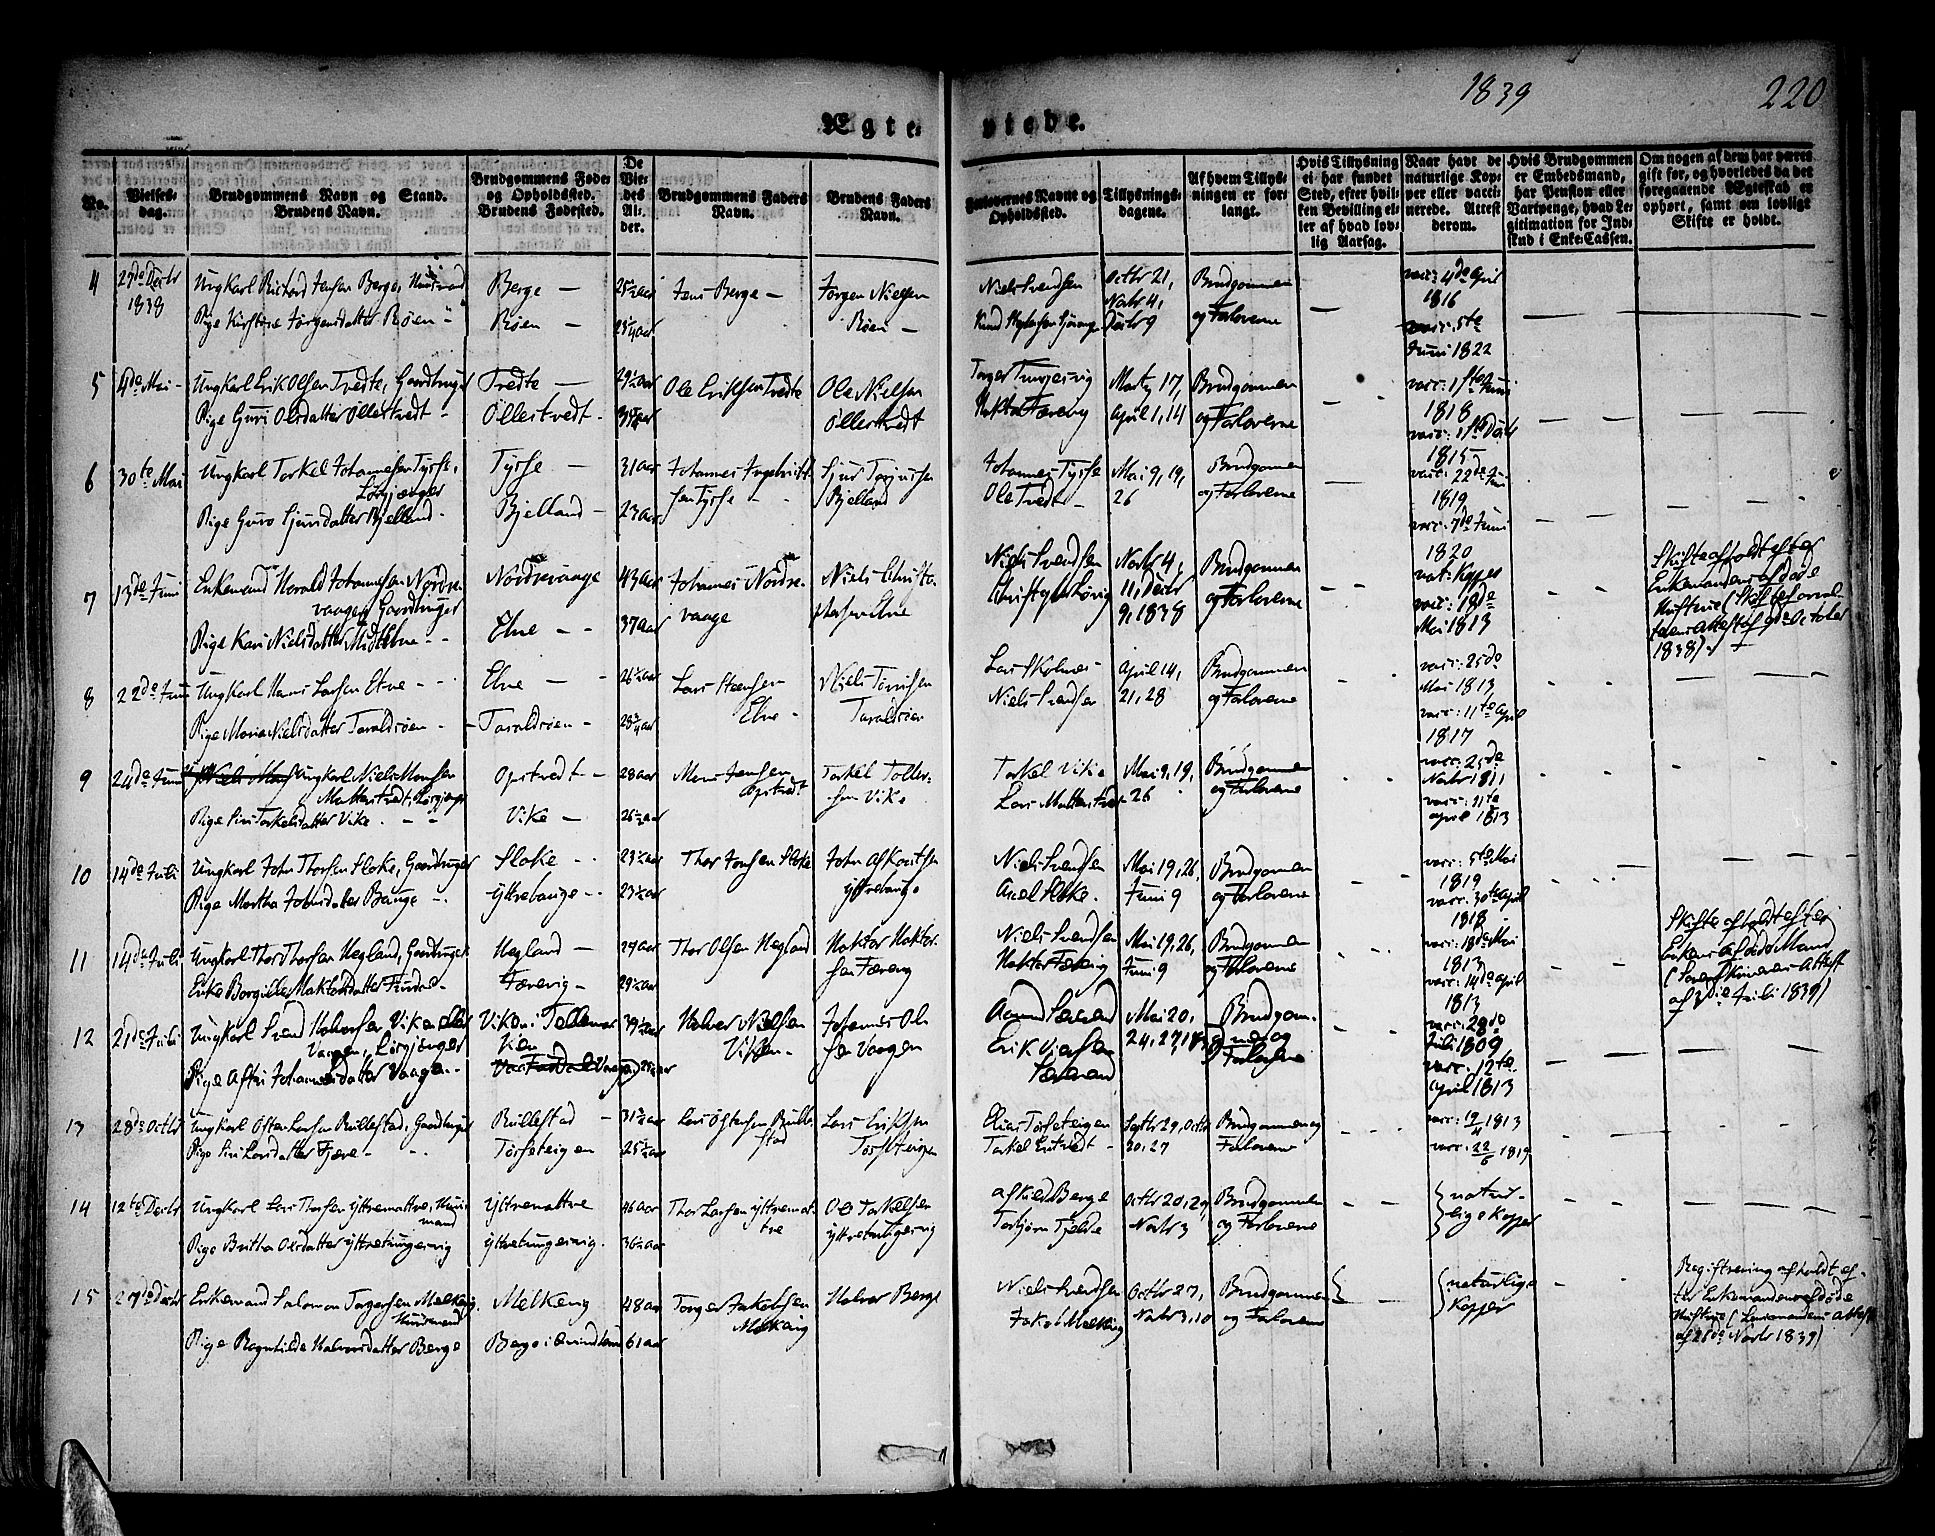 1839
220
Ægte-
viede.
No.
Vielses-
dag.
Brudgommens Navn og Stand.
Brudens Navn.
Brudgommens Føde-
og Opholdssted.
Brudens Fødested.
De
Vie-
des
Al-
der.
Brudgommens Faders
Navn.
Brudens Faders
Navn.
Forlovernes Navne og
Opholdssted.
Tillysnings-
dagene.
Af hvem Tillys-
ningen er for-
langt.
Hvis Tillysning
ei har fundet
Sted, efter hvil-
ken Bevilling el-
ler af hvad lov-
lig Aarsag.
Naar havt de
naturlige Kop-
per eller vacci-
nerede. Attest
derom.
Hvis Brudgommen
er Embedsmand,
har Pension eller
Vartpenge, hvad Le-
gitimation for Ind-
skud i Enke-Cassen.
Om nogen af dem har været
gift før, og hvorledes da det
foregaaende Ægteskab er
ophørt, samt om lovligt
Skifte er holdt.
4
27de Decbr
1838
Ungkarl Richard Jensen Berge, Huusmand
Pige Kirstine Jørgensdatter Røen
Berge
Røen
Jens Berge
Jørgen Nielsen
Røen
Niels Svendsen
Octbr 21,
Novbr 4,
Decbr 9
Brudgommen
og Forloverne
vacc: 4de April
1816
vacc: 5te
Juni 1822
5
4de Mai
Ungkarl Erik Olsen Tvedte, Gaardbruger
Pige Guri Olsdatter Øllestvedt
Tvedte
Øllestvedt
29½ aar
Ole Eriksen Tvedte
Ole Nielsen
Øllestvedt
Martz 17,
April 1, 14
Brudgommen
og Forloverne
vacc: 1ste Juni
1818
vacc: 1ste Decbr
1815
6
30te Mai
Ungkarl Torkel Johannessen Tysse,
Løsgjænger
Pige Guro Sjursdatter Bjelland
Tysse
Bjelland
31 aar
23 aar
Johannes Ingebrigt-
sen Tysse
Sjur Torjussen
Bjelland
Johannes Tysse
Ole Tvedt
Mai 9, 19,
26
Brudgommen
og Forloverne
vacc: 22de Juni
1819
vacc: 7de Juni
1820
7
13de Juni
Enkemand Harald Johannessen Nordre-
vaage, Gaardbruger
Pige Kari Nielsdatter Midt Etne
Nordrevaage
Etne
43 aar
37 aar
Johannes Nordre-
vaage
Niels Christo-
phersen Etne
Niels Svendsen
Novbr 4,
11, Decbr
9, 1838
Brudgommen
og Forloverne
nat: Kopper
vacc: 18de
Mai 1813
Skifte afholdt efter
Enkemandens afdøde
Hustrue (Skifteforval-
terens Attest af 9de October
1838)
8
22de Juni
Ungkarl Hans Larsen Etne
Pige Maria Nielsdatter Taraldsøen
Etne
Taraldsøen
26½ aar
Lars Steensen
Etne
Niels Tørrisen
Taraldsøen
Lars Skolnes
Niels Svendsen
April 14,
21, 28
Brudgommen
og Forloverne
vacc: 25de
Mai 1813
vacc: 11te April
1817
9
24de Juni
Ungkarl Niels Monsen
Mattestvedt, Løsgjænger
Pige Siri Torkelsdatter Vike
Opstvedt
Vike
28 aar
26½ aar
Mons Jensen
Opstvedt
Torkel Tollev-
sen Vike
Torkel Vike
Lars Mattestvedt
Mai 9, 19,
26
Brudgommen
og Forloverne
vacc: 25de
Novbr 1811
vacc: 11te
April 1813
10
14de Juli
Ungkarl John Thorsen Sloke, Gaardbruger
Pige Martha Johnsdatter Bauge
Sloke
Yttrebauge
23½ aar
23½ aar
Thor Jonsen Sloke
John Asloutsen
Yttrebauge
Niels Svendsen
Axel Sloke
Mai 19, 26,
Juni 9
Brudgommen
og Forloverne
vacc: 5te Mai
1819
vacc: 30te April
1818
11
14de Juli
Ungkarl Thor Thorsen Hegland, Gaardbruger
Enke Borgille Haktorsdatter Frudal
Hegland
Færevig
29½ aar
Thor Olsen Hegland
Haktor Haktor-
sen Færevig
Niels Svendsen
Haktor Færevig
Mai 19, 26,
Juni 9
Brudgommen
og Forloverne
vacc: 18de Mai
1813
vacc: 14de April
1813
Skifte afholdt efter
Enkens afdøde Mand
(Sorenskriverens Attest
af Juli 1839)
12
21de Juli
Ungkarl Svend Halvorsen Viken eller
Vaagen, Løsgjænger
Pige Astri Johannesdatter Vaage
Viken i Tellemarken
39½ aar
Halvor Nielsen
Viken
Johannes Ol-
sen Vaagen
Aamund Sævereid
Erik Viesen
Sævereid
Mai 20,
24, 27, 1838
Brudgom-
men og
Forloverne
vacc: 28de
Juli 1809
vacc: 12te
April 1813
13
28de Octbr
Ungkarl Østen Larsen Rullestad, Gaardbruger
Pige Siri Larsdatter Fjære
Rullestad
Torsteigen
31¾ aar
25½ aar
Lars Østensen Rulle-
stad
Lars Eriksen
Torsteigen
Elias Torsteigen
Torkel Entvedt
Septbr 29, Octbr
20, 27
Brudgommen og
Forloverne
vacc: 19/4 1813
vacc: 22/6 1819
14
12te Decbr
Ungkarl Lars Thorsen Yttremattre, Huus-
mand
Pige Britha Olsdatter Yttretungesvig
Yttremattre
Yttretungesvig
46 aar
36½ aar
Thor Larsen Yttremat-
tre
Ole Torkelsen
Yttretungesvig
Torbjørn Tjelde
Octbr 20, 29,
Novbr 3
Brudgommen
og Forloverne
natur-
lige Kopper
15
27de Decbr
Enkemand Salomon Torgersen Melkevig,
Huusmand
Pige Ragnhilde Halvorsdatter Berge
Melkevig
48 aar
61 aar
Torger Jakobsen
Melkevig
Halvor Berge
Niels Svendsen
Jakob Melkevig
Octbr 27,
Novbr 3, 10
Brudgommen
og Forloverne
naturlige
Kopper
Registrering afholdt ef-
ter Enkemandens afdøde
Hustrue (Lensmandens Attest
af Novbr 1839)